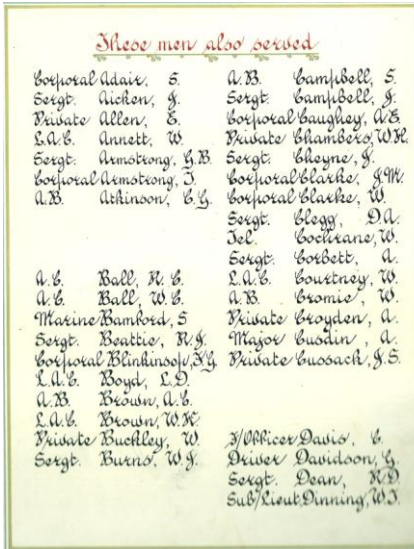 These men also served
Corporal Adair, S.
Sergt. Aicken, J.
Private Allen, E.
L.A.C. Annett, W.
Sergt. Armstrong, G.B.
Corporal Armstrong, J.
A.B. Atkinson, C.G.
A.C. Ball, H.C.
A.C. Ball, W.C.
Marine Bamford, S
Sergt. Beattie, R.J.
Corporal Blinkinsop, F.G.
L.A.C. Boyd, L.D.
A.B. Brown, A.C.
L.A.C. Brown, W.H.
Private Buckley, W.
Sergt. Burns, W.J.
A.B. Campbell, S.
Sergt. Campbell, J.
Corporal Caughey, A.E.
Private Chambers, W.H.
Sergt. Cheyne, J.
Corporal Clarke, J.M.
Corporal Clarke, W.
Sergt. Clegg, D.A.
Tel. Cochrane, W.
Sergt. Corbett, A.
L.A.C. Courtney, W.
A.B. Cromie, W.
Private Croyden, A.
Major Cusdin, A.
Private Cussack, J.S.
F/Officer Davis, C.
Driver Davidson, G.
Sergt. Dean, R.D.
Sub/Lieut. Dinning, W.J.